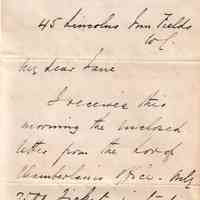 45 Lincolns Inn Fields
W.C.
My dear Jane
I received this
morning the enclosed
letter from the Lord
Chamberlain's Office. Only